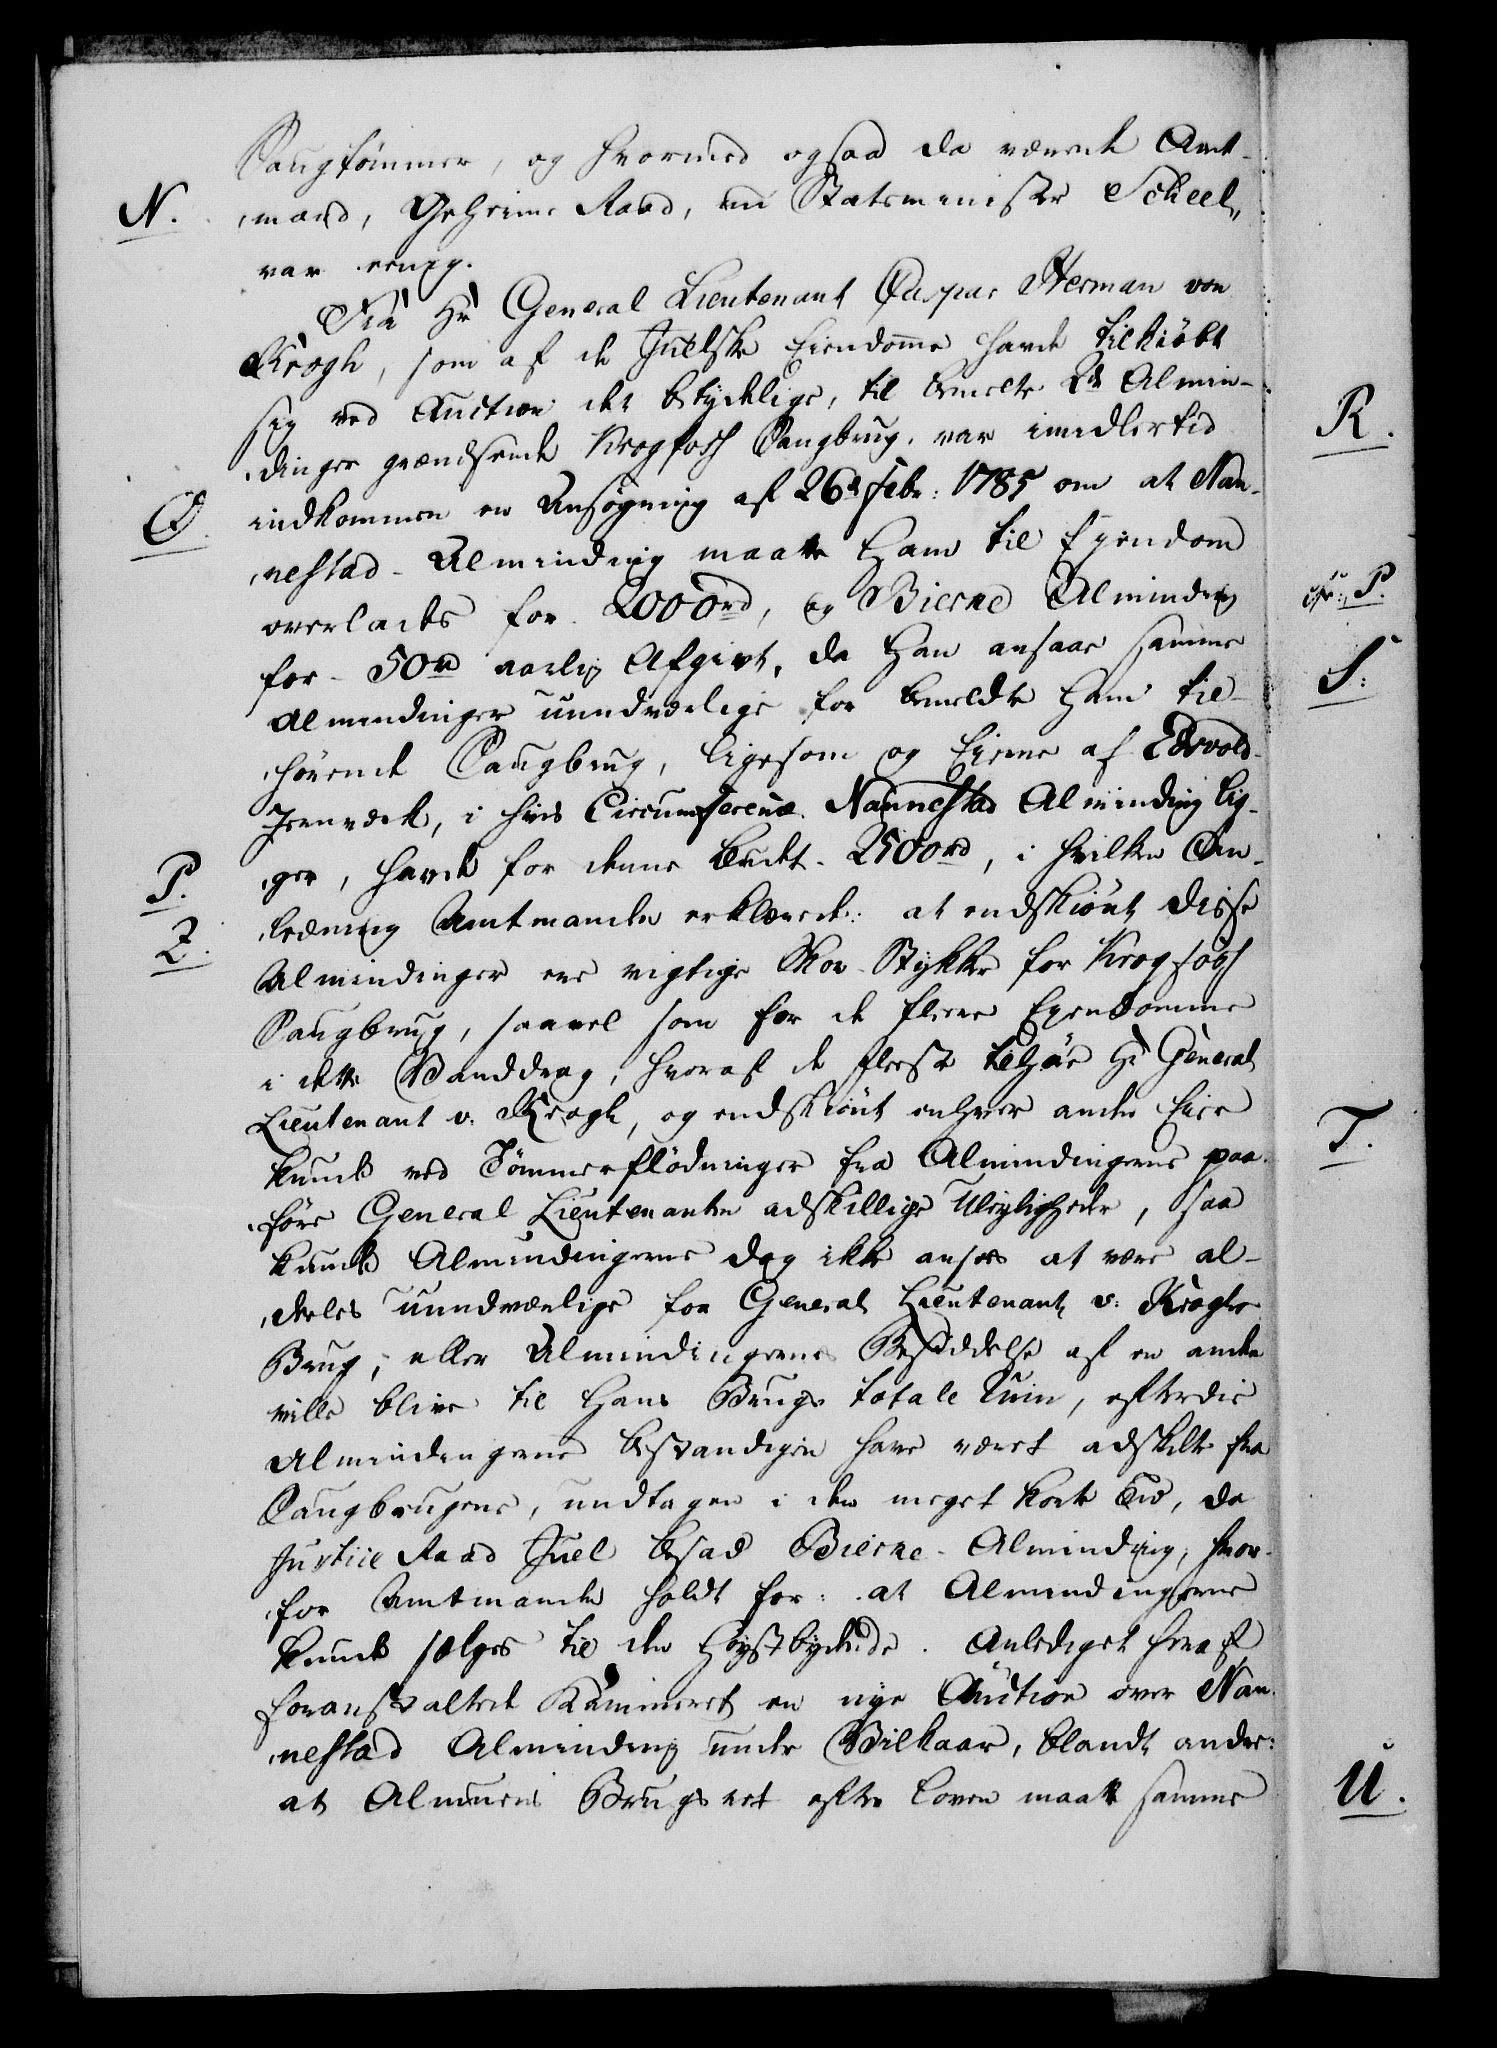 Saugtømmer, og hvormed ogsaa da værende Amt-
N. mand, Geheime Raad, nu Statsminister Scheel,
var eenig.
Fra Hr General Lieutenant Caspar Herman von
Krogh, som af de Juelske Eiendomme havde tilkiøbt
sig ved Auction det betydelige, til bemelte 2de Almin-
dinger grændsende Krogfoss Saugbrug, var imidlertid
O. indkommen en Ansøgning af 26d Febr: 1785 om at Nan-
nestad Alminding maatte Ham til Eyendom
overlades for 2000rd, og Bierke Alminding
for 50rd aarlig Afgivt, da Han ansaae samme
Almindinger uundværlige for bemeldte Ham til-
hørende Saugbrug, ligesom og Eierne af Edsvold-
Jernværk, i hvis Circumference Nannestad Alminding lig-
P. ger, havde for denne budet 2500rd, i hvilken An-
Q. ledning Amtmanden erklærede: at endskiønt disse
Almindinger ere vigtige Skov-Stykker for Krogfoss
Saugbrug, saavel som for de flere Eyendomme
i dette Vanddrag, hvoraf de fleste tilhør Hr General
Lieutenant v. Krogh, og endskiønt enhver anden Eier
kunde ved Tømmerflødninger fra Almindingerne paa-
føre General Lieutenanten adskillige Uleyligheder, saa
kunde Almindingerne dog ikke ansees at være al-
deeles uundværlige for General Lieutenant v: Kroghs
Brug, eller Almindingernes Besiddelse af en anden
ville blive til Hans Brugs totale Ruin, efterdi
Almindingerne bestandigen have været adskilte fra
Saugbrugene, undtagen i den meget korte Tid, da
Justice Raad Juel besad Bierke-Alminding; hvor-
for Amtmanden holdt for: at Almindingerne
kunde sælges til den Høystbydende. Anlediget heraf
foranstaltede Kammeret en nye Auction over Nan-
nestad Alminding under Vilkaar, blandt andre:
at Almuens Brugsret efter Loven maatte samme
R.
cfr: P.
S:
T.
U.